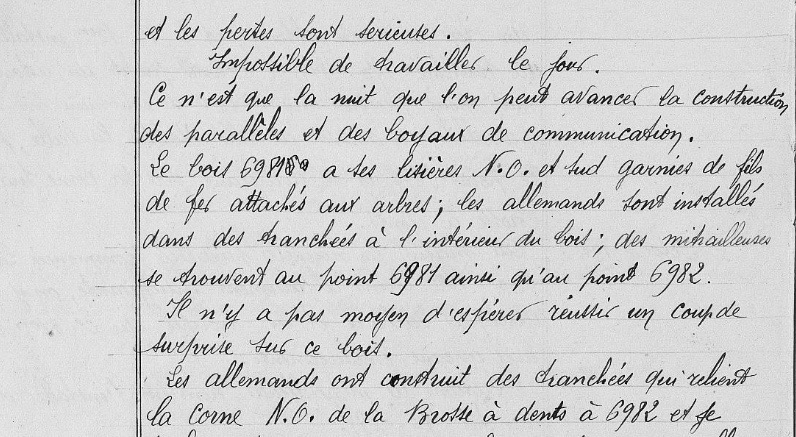 et les pertes sont serieuses.
Impossible de travailler le jour.
Ce n'est que la nuit que l'on peut avancer la construction
des parallèles et des boyaux de communication.
Le bois 6981 a ses lisières N.O. et sud garnies de fils
de fer attachés aux arbres; les allemands sont installés
dans des tranchées à l'intérieur du bois; des mitrailleuses
se trouvent au point 6981 ainsi qu'au point 6982.
Il n'y a pas moyen d'espérer réussir un coup de
surprise sur ce bois.
Les allemands ont construit des tranchées qui relient
la corne N.O. de la Brosse à dents à 6982 et se